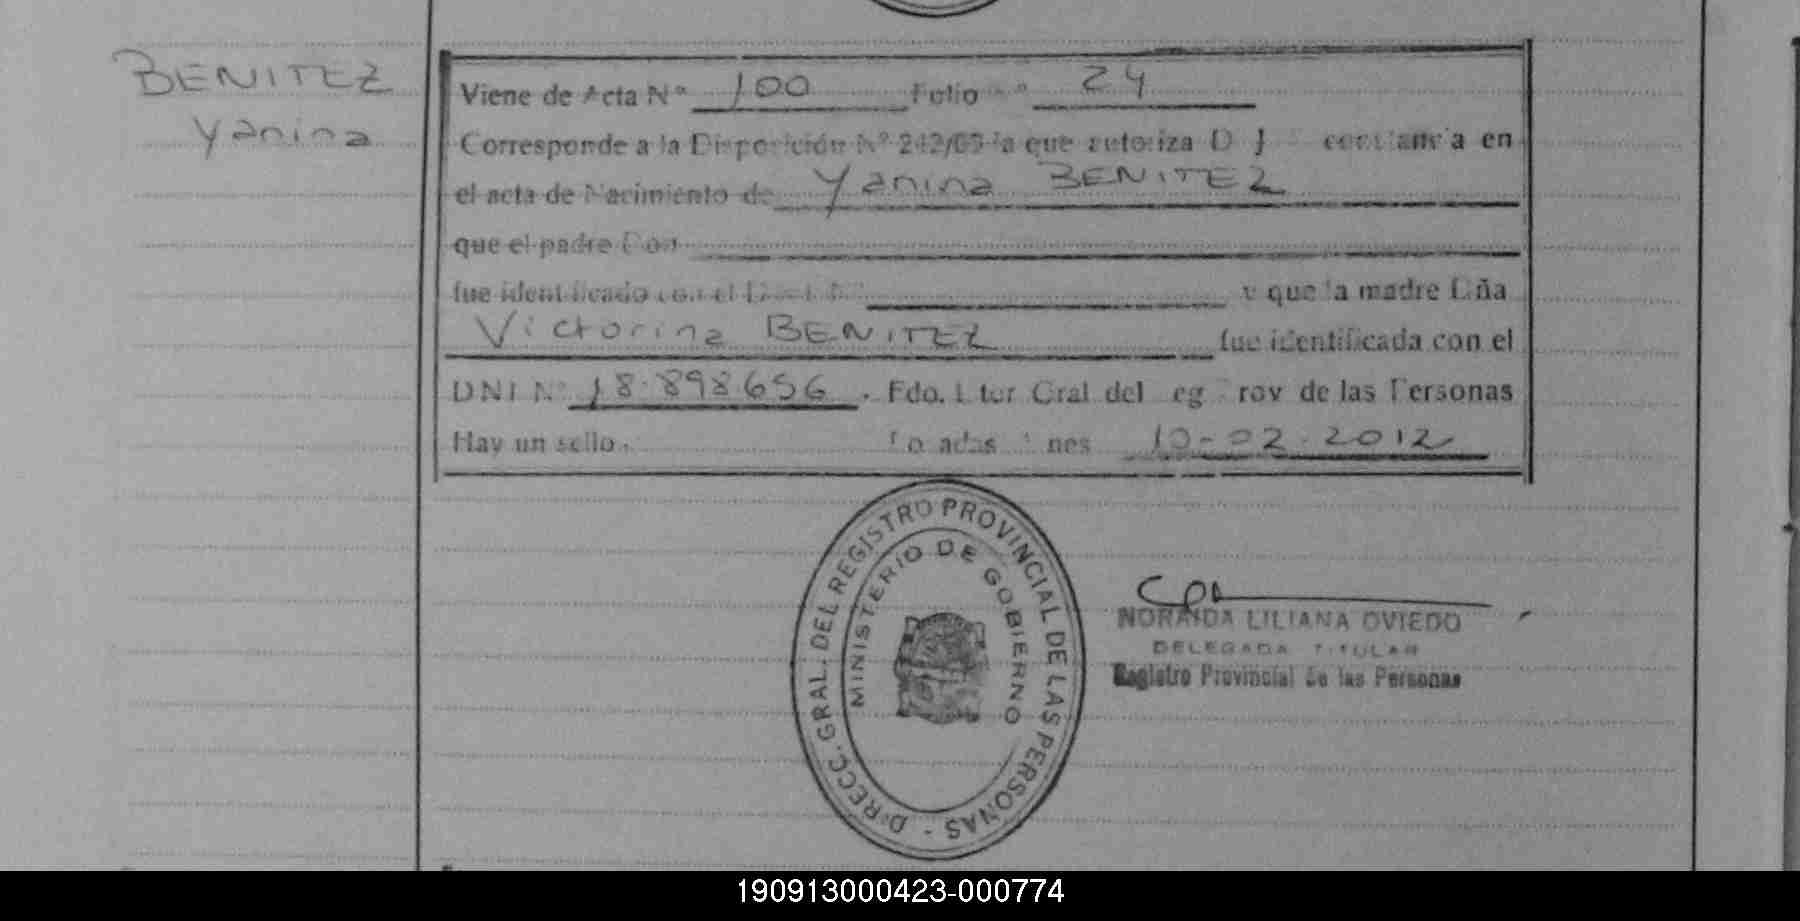 BENITEZ
Yanina
Viene de Acta Nº 100 Folio Nº 24
Corresponde a la Disposición Nº 242/09 la que autoriza constancia en
el acta de Nacimiento de Yanina BENITEZ
que el padre Don
fue identificado con el y que la madre Dña
Victorina BENITEZ fue identificada con el
DNI Nº 18.898.656. Fdo. Gral del Reg Prov de las Personas
Hay un sello. Posadas Mnes 10-02-2012
DIRECC. GRAL. DEL REGISTRO PROVINCIAL DE LAS PERSONAS -
MINISTERIO DE GOBIERNO
NORAIDA LILIANA OVIEDO
DELEGADA TITULAR
Registro Provincial de las Personas
190913000423-000774